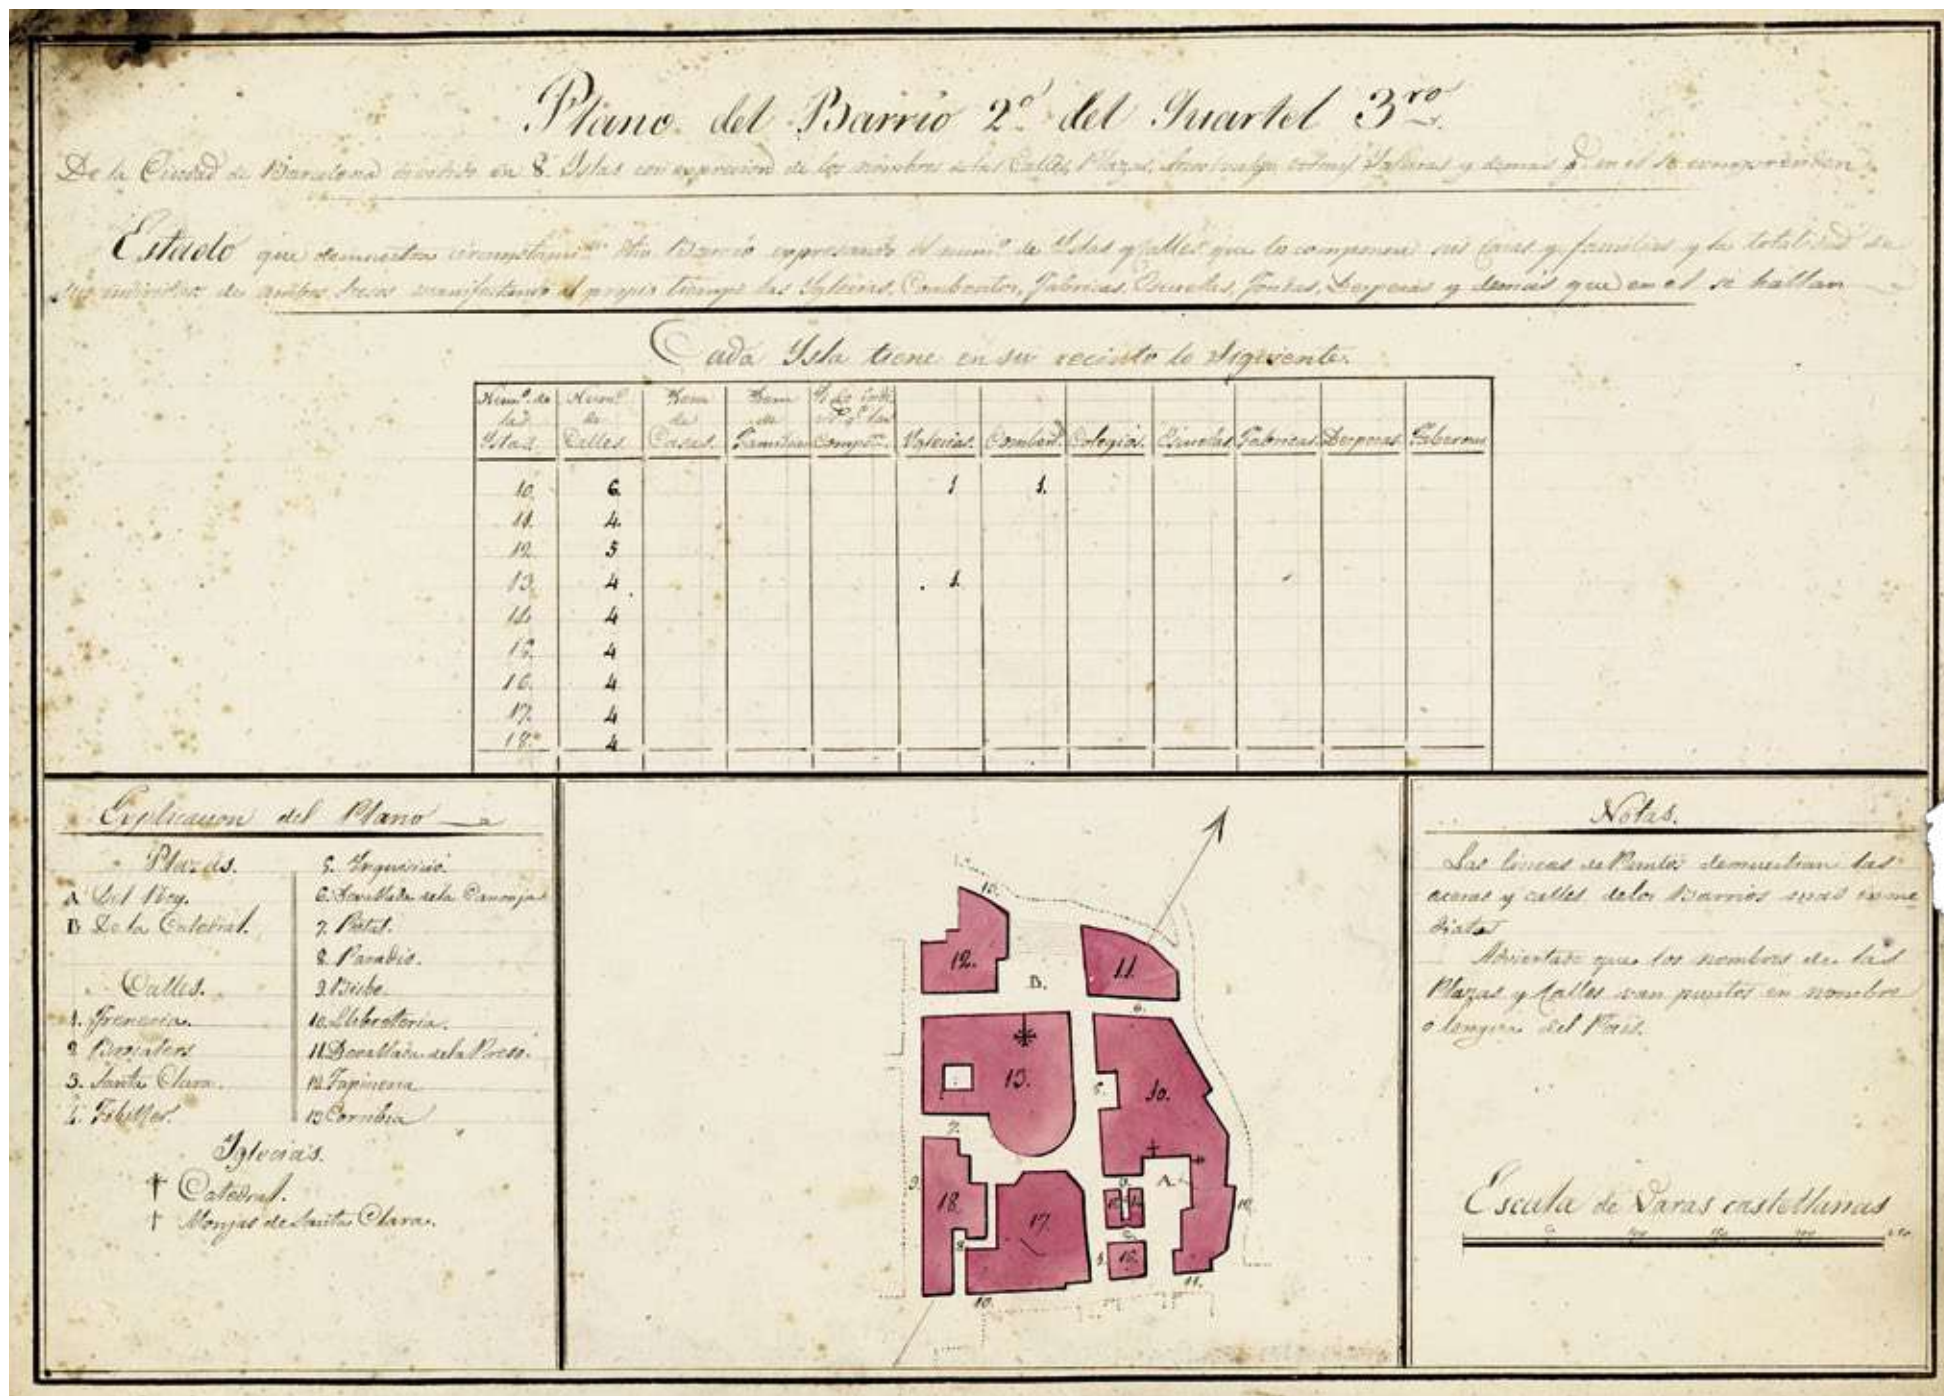 Plano del Barrio 2º del Quartel 3ro
De la Ciudad de Barcelona dividido en 8 Islas con expresion de los nombres de las Calles, Plazas, y demas q. en el se comprenden
Estado que demuestra Barrio expresando el num.º de Yslas y Calles que lo componen sus Casas y familias y la totalidad de
de ambos Secsos manifestando al propio tiempo las Yglesias, Combentos, Fabricas, Escuelas, Fondas, Despenas y demás que en el se hallan
Cada Ysla tiene en su recinto lo Siguiente.
Num.º de las Yslas. Num.º de Calles. Num de Casas. Num de Familias Yglesias. Combent. Colegios. Escuelas Fabricas Despenas Tabernas
10. 6. 1 1.
11. 4.
12. 5
13. 4 1.
14. 4
15. 4
16. 4
17. 4
18. 4
Explicacion del Plano
Plazas.
A Del Rey.
B De la Catedral.
Calles.
1. Freneria.
2 Brocaters
3. Santa Clara.
4. Fibeller.
5. Inquisició.
6. Devallada de la Canonja
7. Pietat.
8. Paradis.
9. Bisbe.
10. Llibreteria.
11. Devallada de la Presó.
12. Tapineria
13 Corribia
Yglecias.
Catedral.
Monjas de Santa Clara.
13.
12.
B.
11.
6.
13.
5.
10.
7.
9.
18.
17.
8.
A.
3.
15.
14.
2.
1.
16.
12.
10.
11.
Notas.
Las lineas de Puntos demuestran las
aceras y calles de los Barrios mas inme
diatos
Adviertase que los nombres de las
Plazas y Calles van puestos en nombre
o lengua del Pais.
Escala de Varas castellanas